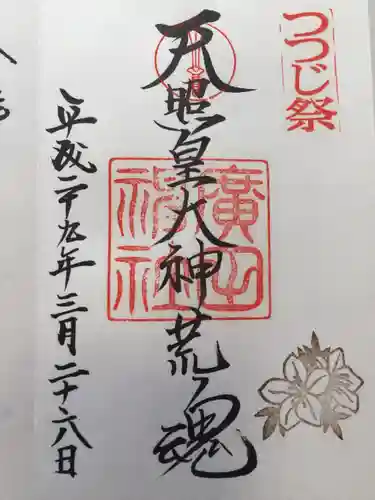 つつじ祭
天照皇大神荒魂
廣田神社
平成二十九年三月二十六日